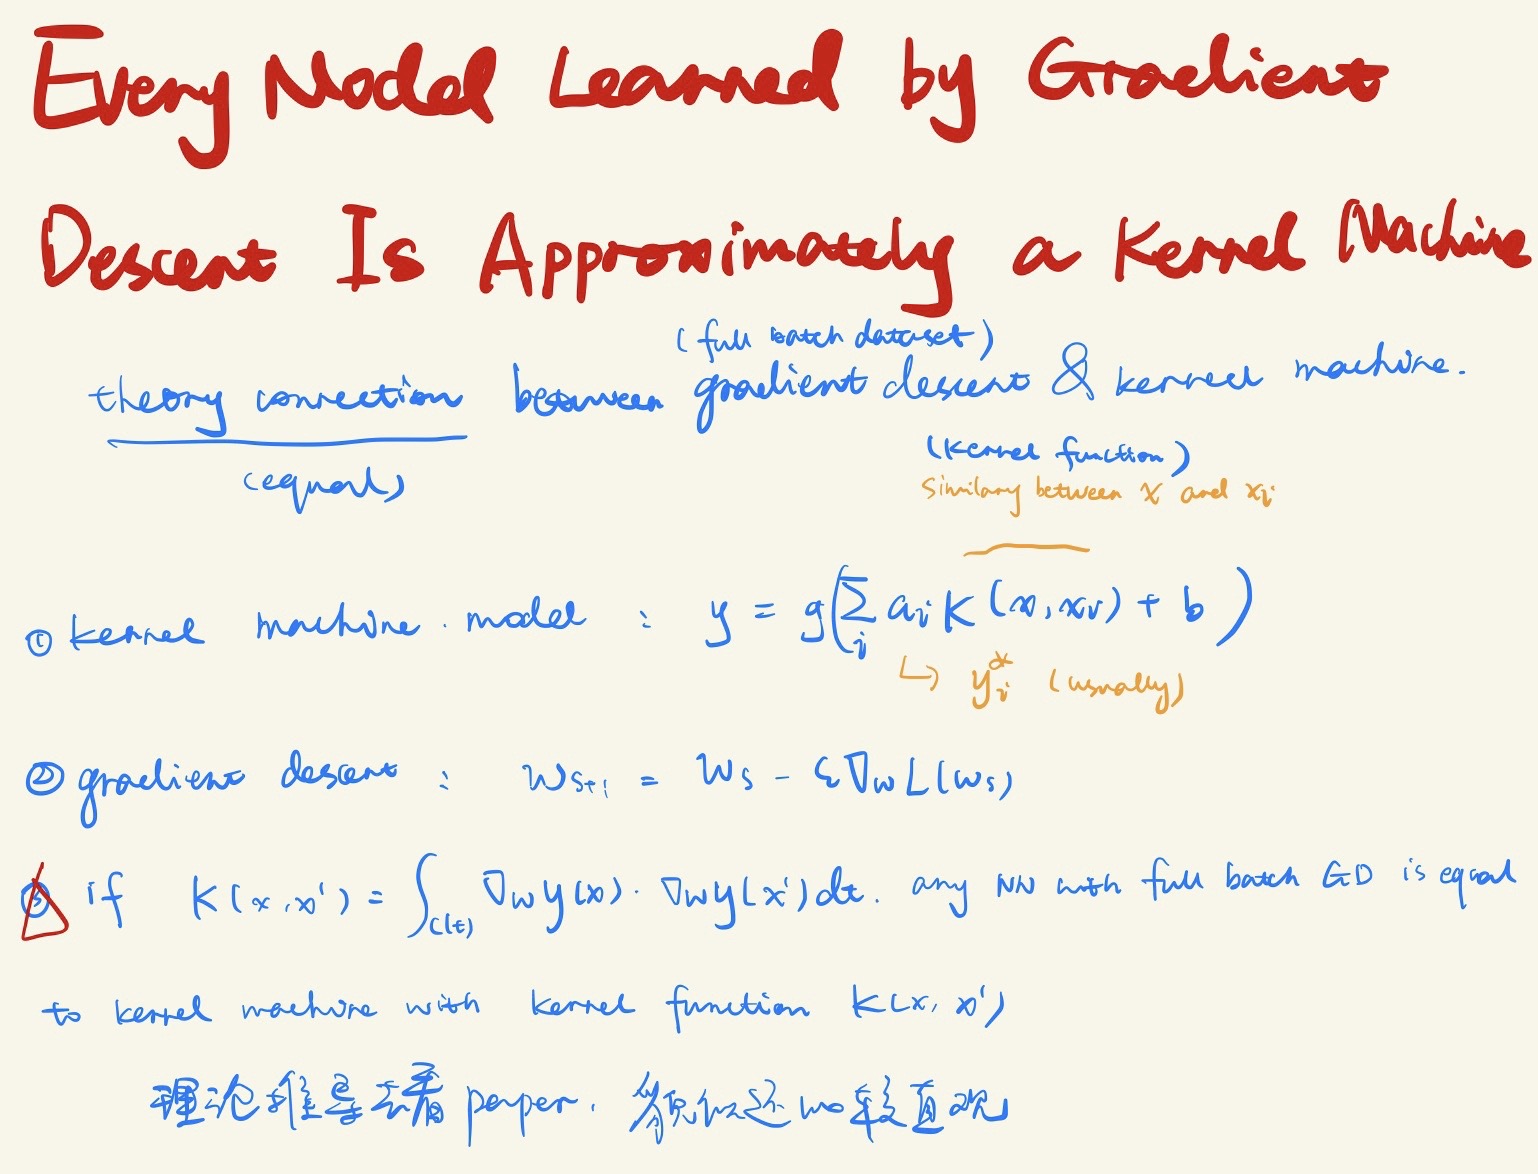 Every Model Learned by Gradient
Descent Is Approximately a Kernel Machine
(full batch dataset)
theory connection between gradient descent & kernel machine.
(equal)
(kernel function)
Similary between x and xi
① kernel machine model : y = g(∑i ai K(x, xi) + b)
↳ yi* (usually)
② gradient descent : Ws+1 = Ws - ε∇w L(Ws)
③ if K(x, x') = ∫C(t) ∇w y(x) · ∇w y(x') dt. any NN with full batch GD is equal
to kernel machine with kernel function K(x, x')
理论推导去看 paper.